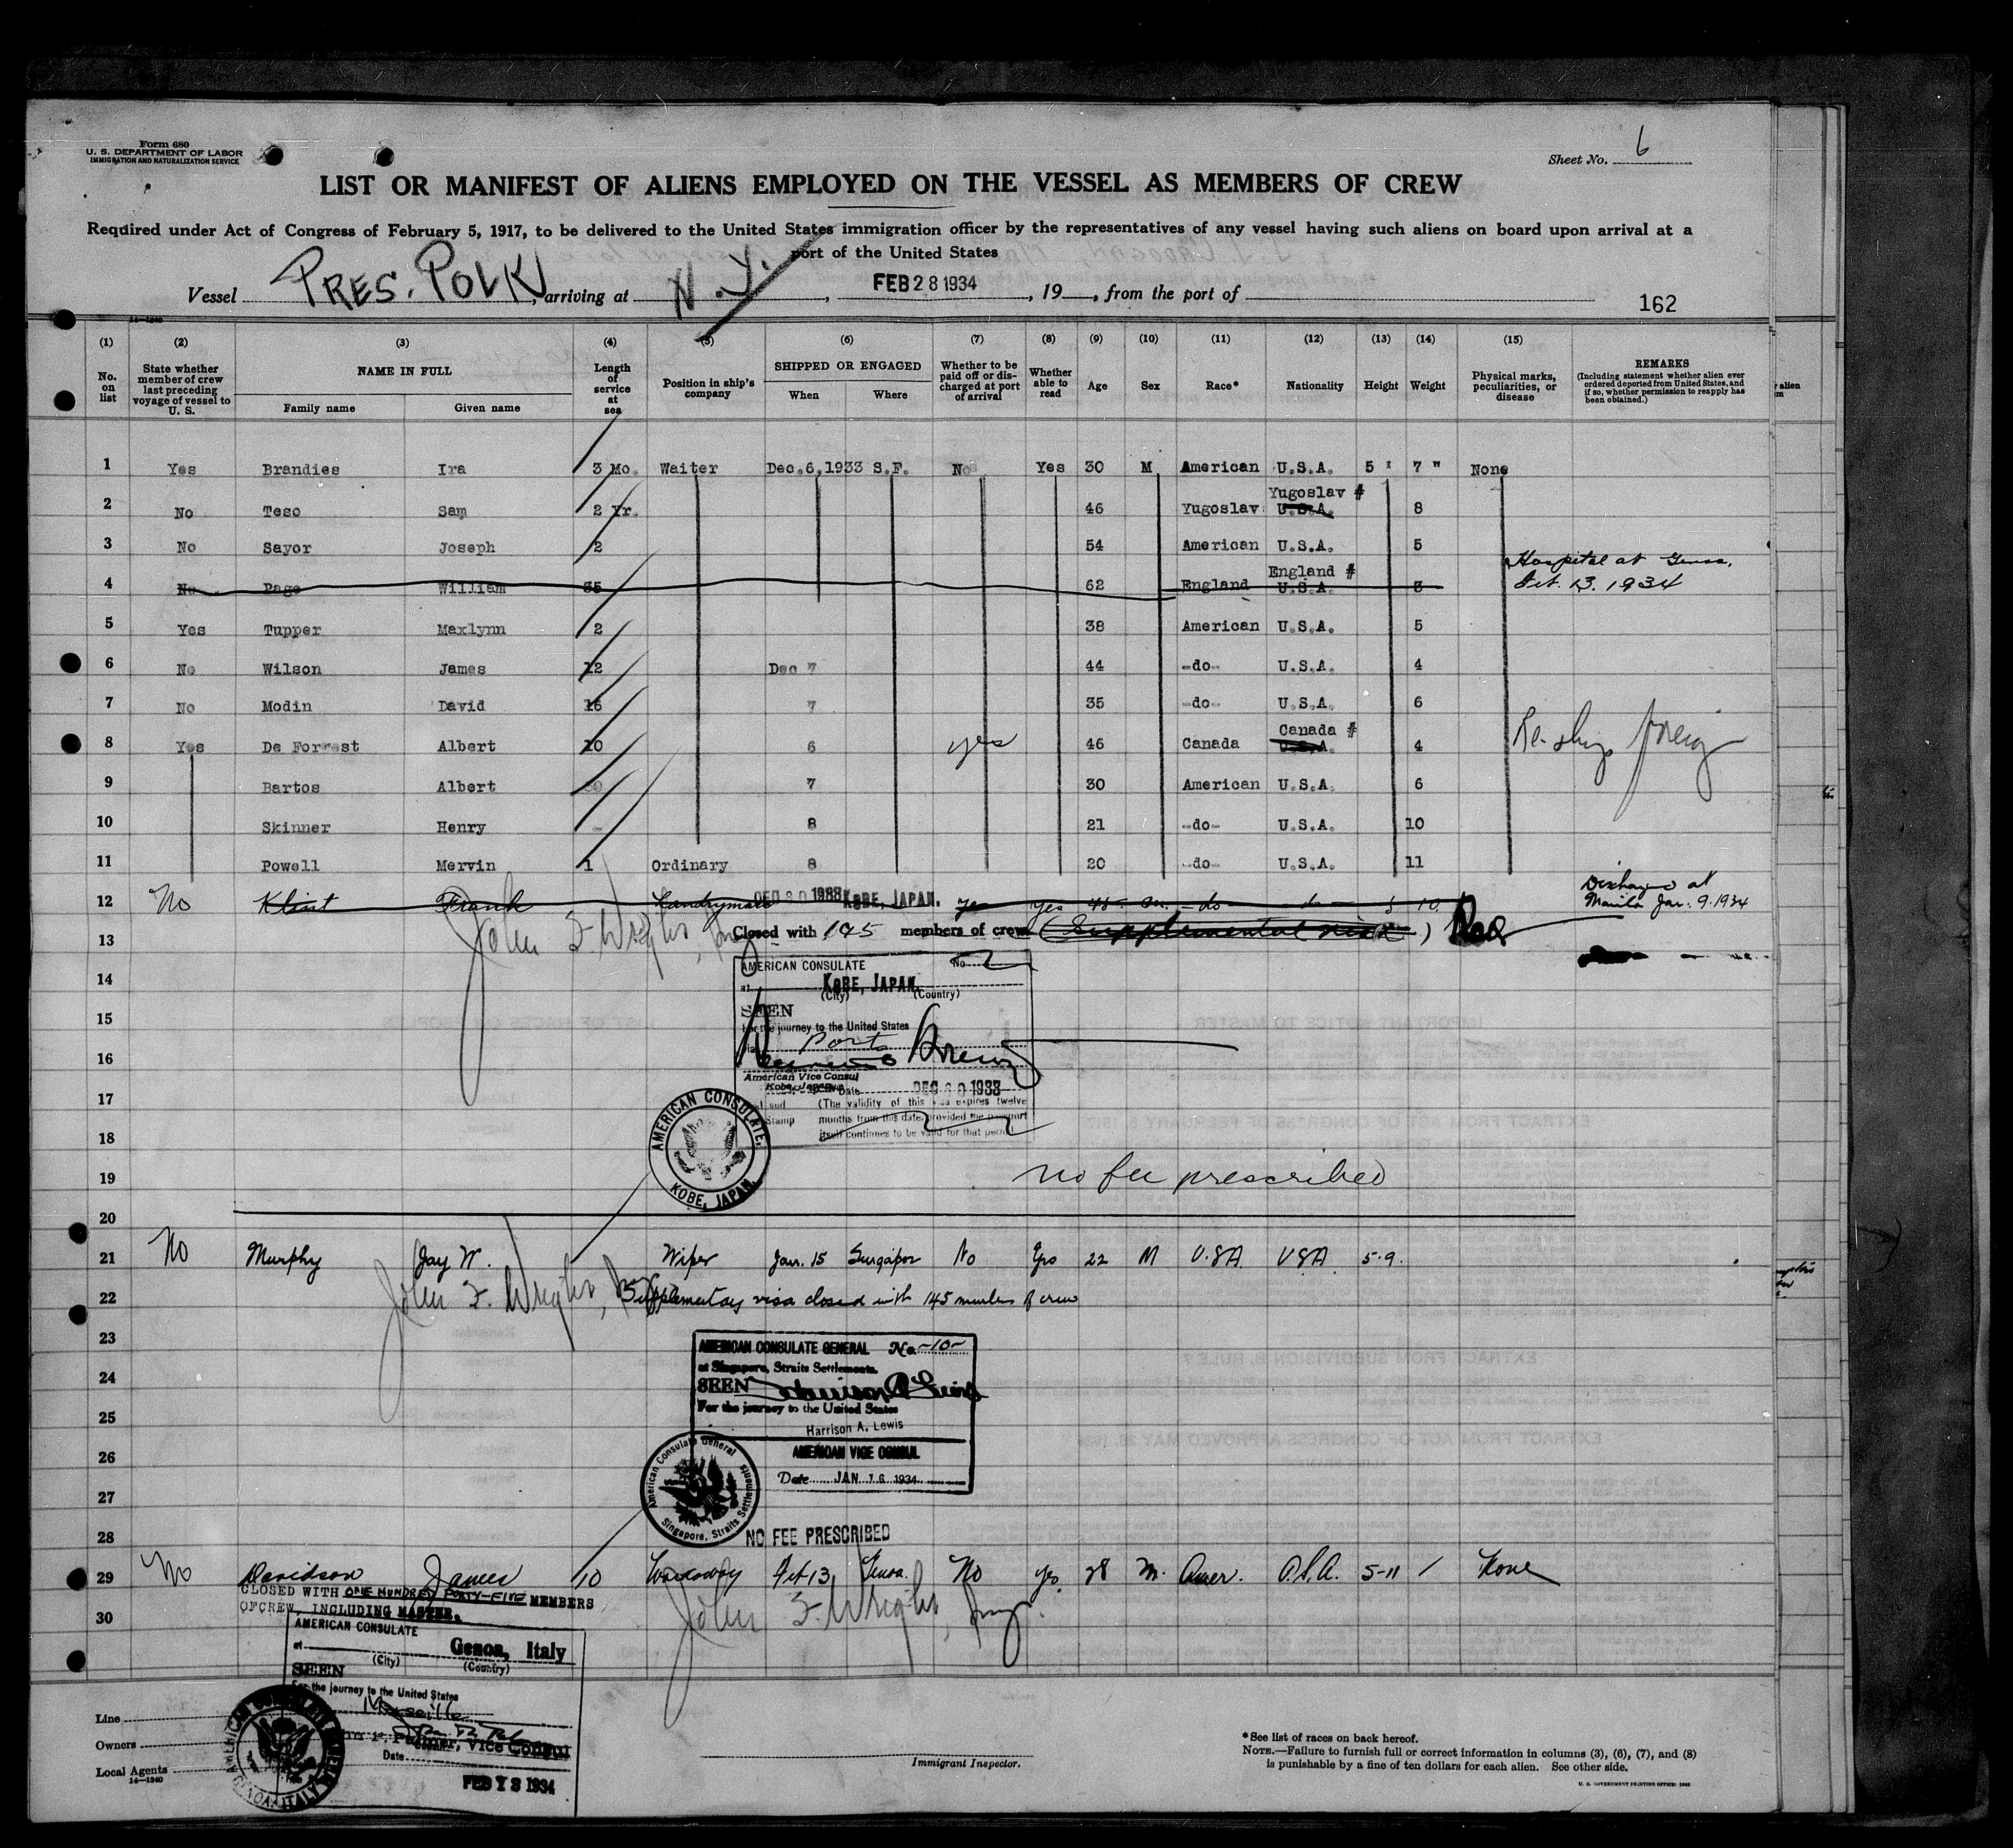 Form 680
U. S. DEPARTMENT OF LABOR
IMMIGRATION AND NATURALIZATION SERVICE
Sheet No. 6
LIST OR MANIFEST OF ALIENS EMPLOYED ON THE VESSEL AS MEMBERS OF CREW
Required under Act of Congress of February 5, 1917, to be delivered to the United States immigration officer by the representatives of any vessel having such aliens on board upon arrival at a
port of the United States
Vessel PRES. POLK, arriving at N.Y., FEB 28 1934, 19 , from the port of
162
14-1240
(1) (2) (3) (4) (5) (6) (7) (8) (9) (10) (11) (12) (13) (14) (15)
No. on list
State whether member of crew last preceding voyage of vessel to U. S.
NAME IN FULL
Family name Given name
Length of service at sea
Position in ship's company
SHIPPED OR ENGAGED
When Where
Whether to be paid off or discharged at port of arrival
Whether able to read
Age Sex Race* Nationality Height Weight
Physical marks, peculiarities, or disease
REMARKS
(Including statement whether alien ever ordered deported from United States, and if so, whether permission to reapply has been obtained.)
1 Yes Brandies Ira 3 Mo. Waiter Dec.6,1933 S.F. No Yes 30 M American U.S.A. 5 ' 7 " None
2 No Teso Sam 2 Yr. 46 Yugoslav Yugoslav # U.S.A. 8
3 No Sayor Joseph 2 54 American U.S.A. 5
4 No Page William 35 62 England England # U.S.A. 3 Hospital at Genoa, Feb. 13. 1934
5 Yes Tupper Maxlynn 2 38 American U.S.A. 5
6 No Wilson James 12 Dec 7 44 -do- U.S.A. 4
7 No Modin David 16 7 35 -do- U.S.A. 6
8 Yes De Forrest Albert 10 6 yes 46 Canada Canada # U.S.A. 4 Re-ships foreign
9 Bartos Albert 7 30 American U.S.A. 6
10 Skinner Henry - 8 21 -do- U.S.A. 10
11 Powell Mervin 1 Ordinary 8 20 -do- U.S.A. 11
12 No Klint Frank Laundryman DEC 30 1933 KOBE, JAPAN. yes Yes 45 M. -do- -do- 5 10 Discharged at Manila Jan. 9. 1934
John F. Wright, Ins
13 Closed with 145 members of crew (Supplemental visa)
14 AMERICAN CONSULATE No.
at KOBE, JAPAN.
(City) (Country)
15 SEEN
For the journey to the United States
16 Via Ports
American Vice Consul
Kobe, Japan Date DEC 30 1933
17 (The validity of this visa expires twelve
Stamp months from this date provided the passport
18 itself continues to be valid for that period.)
AMERICAN CONSULATE, KOBE, JAPAN.
19 no fee prescribed
20
21 No Murphy Jay W. Wiper Jan. 15 Singapor No Yes 22 M U.S.A. USA 5-9.
John F. Wright, Ins
22 Supplementary visa closed with 145 members of crew
23 AMERICAN CONSULATE GENERAL No. -10-
at Singapore, Straits Settlements.
24 SEEN Harrison A Lewis
For the journey to the United States
25 Harrison A. Lewis
26 AMERICAN VICE CONSUL
Date JAN 16 1934
American Consulate General Singapore, Straits Settlements
27
28 NO FEE PRESCRIBED
29 No Davidson James 10 Workaway Feb 13 Genoa. No yes 28 M. Amer. U.S.A. 5-11 / None
CLOSED WITH ONE HUNDRED FORTY-FIVE MEMBERS
OF CREW, INCLUDING MASTER.
30 John F. Wright, Ins.
AMERICAN CONSULATE
at Genoa, Italy
(City) (Country)
SEEN
For the journey to the United States
Marseille
Palmer, Vice Consul
Date
FEB 13 1934
AMERICAN CONSULATE GENERAL GENOA, ITALY
Line
Owners
Local Agents
14-1240
Immigrant Inspector.
*See list of races on back hereof.
NOTE.—Failure to furnish full or correct information in columns (3), (6), (7), and (8)
is punishable by a fine of ten dollars for each alien. See other side.
U. S. GOVERNMENT PRINTING OFFICE: 1933